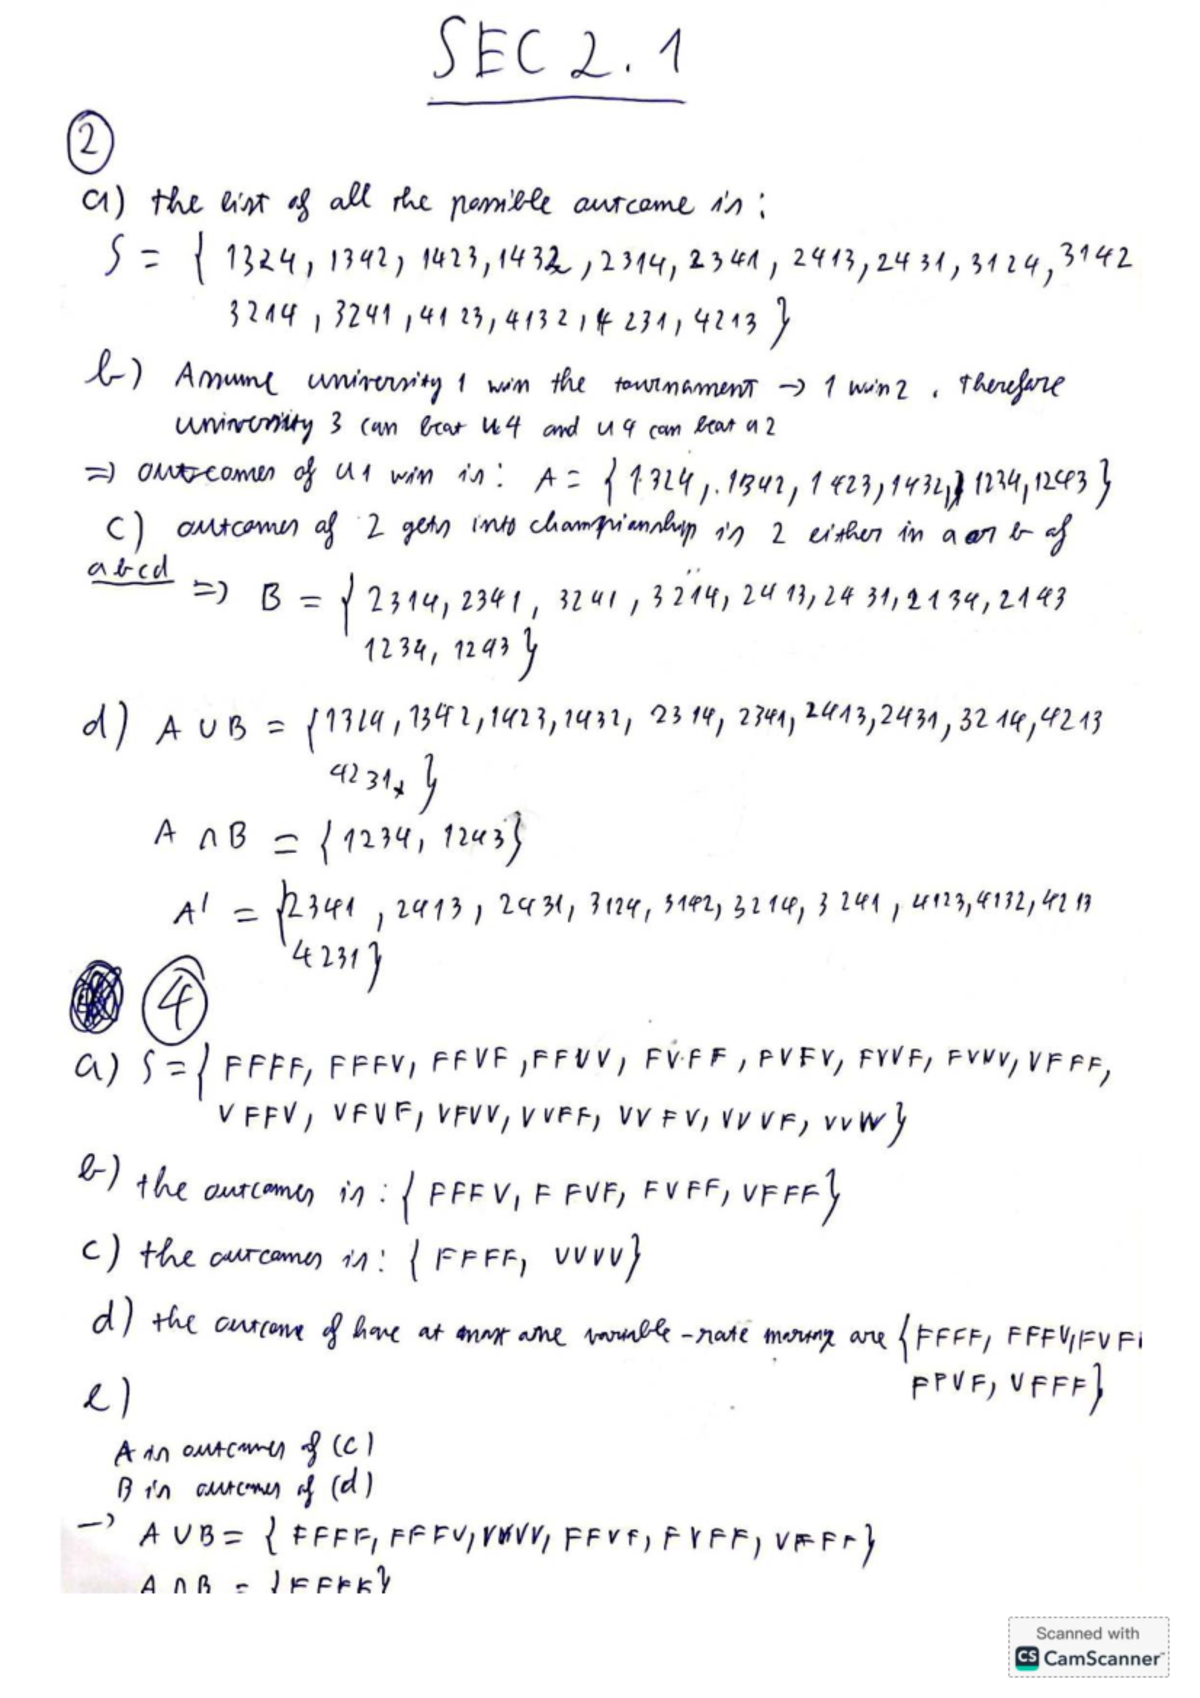 SEC 2.1
2
a) the list of all the possible outcome is:
S = { 1324, 1342, 1423, 1432, 2314, 2341, 2413, 2431, 3124, 3142
3214, 3241, 4123, 4132, 4231, 4213 }
b) Assume university 1 win the tournament → 1 win 2. Therefore
university 3 can beat u4 and u4 can beat u2
=> outcomes of u1 win is: A = { 1324, 1342, 1423, 1432, 1234, 1243 }
c) outcomes of 2 gets into championship is 2 either in a or b of
abcd => B = { 2314, 2341, 3241, 3214, 2413, 2431, 2134, 2143
1234, 1243 }
d) A ∪ B = { 1324, 1342, 1423, 1432, 2314, 2341, 2413, 2431, 3214, 4213
4231, }
A ∩ B = { 1234, 1243 }
A' = { 2341, 2413, 2431, 3124, 3142, 3214, 3241, 4123, 4132, 4213
4231 }
4
a) S = { FFFF, FFFV, FFVF, FFVV, FVFF, FVFV, FVVF, FVVV, VFFF,
VFFV, VFVF, VFVV, VVFF, VVFV, VVVF, VVVV }
b) the outcomes is: { FFFV, FFVF, FVFF, VFFF }
c) the outcomes is: { FFFF, VVVV }
d) the outcome of have at most one variable-rate are { FFFF, FFFV, FVF
FFVF, VFFF }
e)
A is outcomes of (c)
B is outcomes of (d)
→ A ∪ B = { FFFF, FFFV, VVVV, FFVF, FVFF, VFFF }
A ∩ B = { FFFF }
Scanned with
CS CamScanner